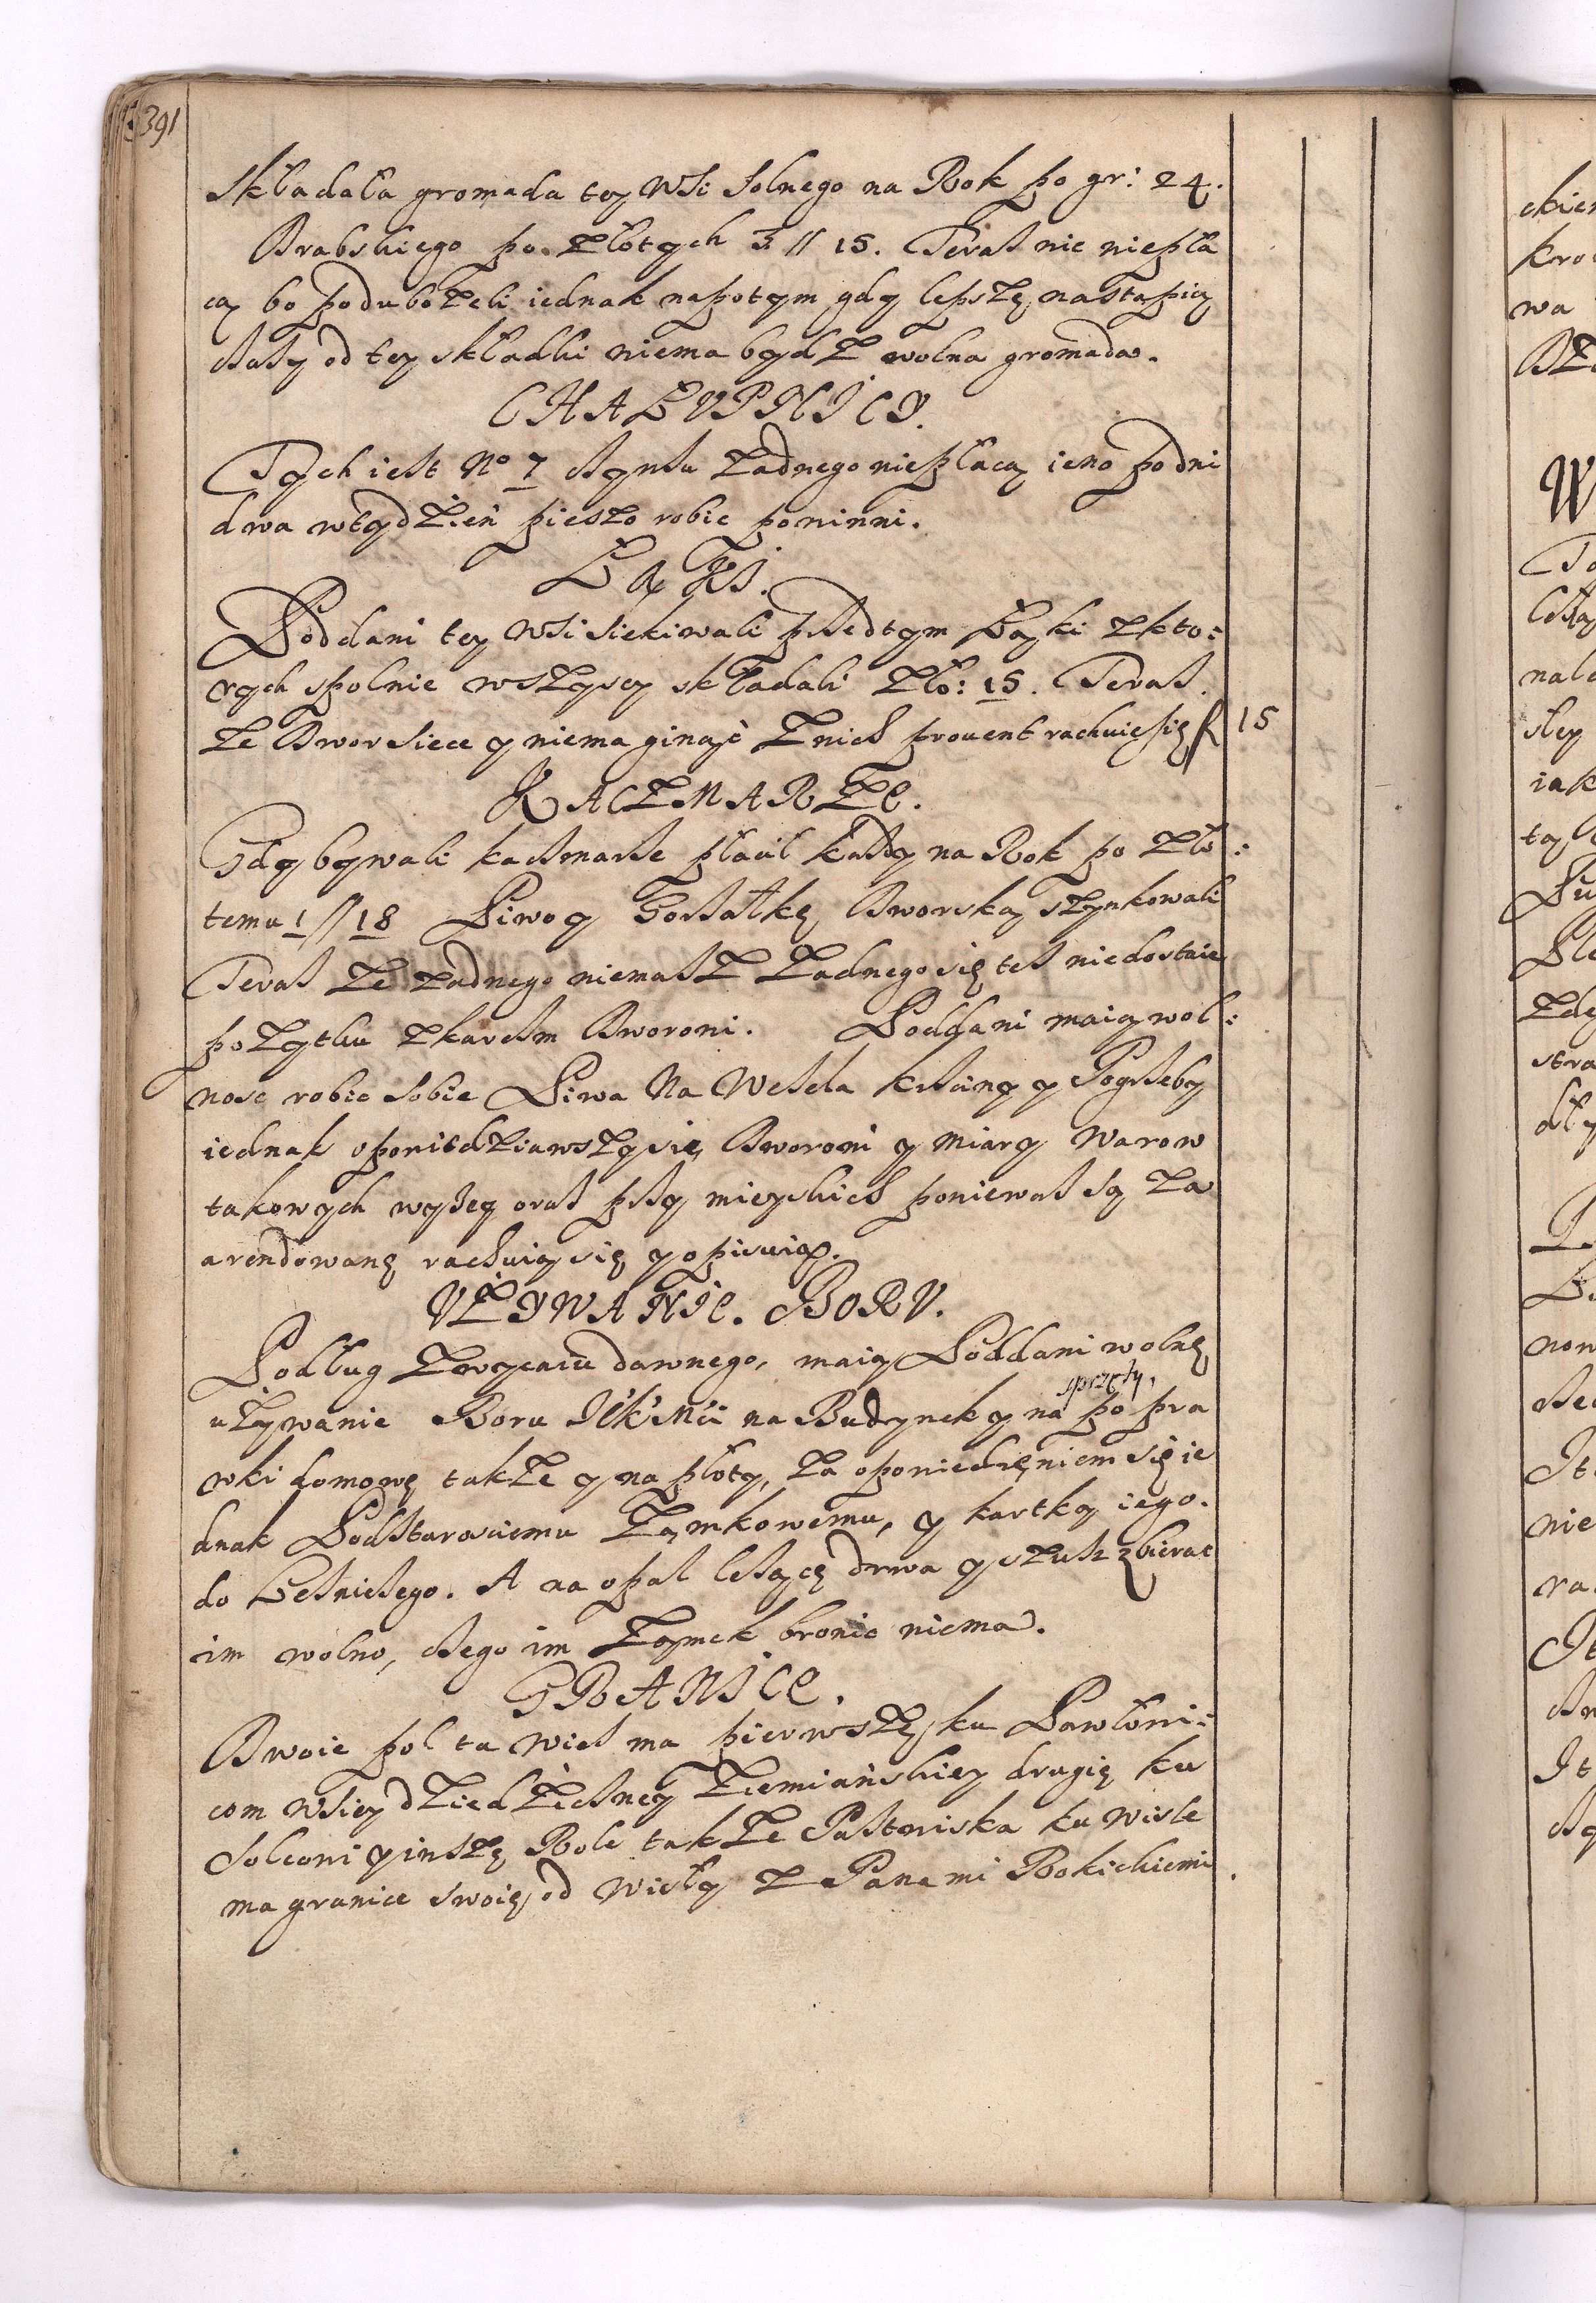 391
Składała gromada tey Wsi Solnego na Rok po gr: 24.
Drabskiego po Złotych 3 // 15. Teraz nic niepła
cą bo podubożeli iednak napotym gdy lepszę nastąpią
czasy od tey składki niema bydź wolna gromada.
CHAŁUPNICY.
Tych iest No 7 Czynszu Żadnego niepłacą ieno po dni
dwa wtydzień pieszo robic powinni.
ŁąKi.
Poddani tey Wsi siekiwali przedtym Łąki z kto:
rych spolnie wszyscy składali Zło: 15. Teraz
że Dwor siece y niema ginąć z nich prouent rachuie się f 15
KACZMARZE.
Gdy bywali kaczmarze płacił każdy na Rok po Zło:
temu 1 // 18 Piwo y Gorzałkę Dworską szynkowali
Teraz że żadnego niemasz Żadnego się też niedostaie
pożytku z karczm Dworowi. Poddani maią wol:
nosc robic sobie Piwa Na Wesela krzciny y Pogrzeby
iednak opowiedziawszy się Dworowi y miary Warow
takowych wyżey oraz przy mieyskich poniewaz są Za
arendowanę rachuią się y opisuią.
VŻYWANIE. BORV.
Podług Zwyczaiu dawnego, maią Poddani wolnę
używanie Boru JCk Mci na Budynek y na sprzęty, po pra
wki domowę także y na płoty, za opowiedzęniem się ie
dnak Podstarosciemu Zamkowemu, y kartką iego.
do Lesniczego. A na opał leżącę drwa y szusz zbierac
im wolno, czego im Zamek bronic niema.
GRANICE.
Dwoie pol ta Wies ma pierwszę ku Pawłowi:
com Wsiey dziedziczney Ziemiańskiey drugię ku
Solcowi y inszę Rolę także Pastwiska ku Wisle
ma granice swoię od Wisły z Panami Rokickiemi.